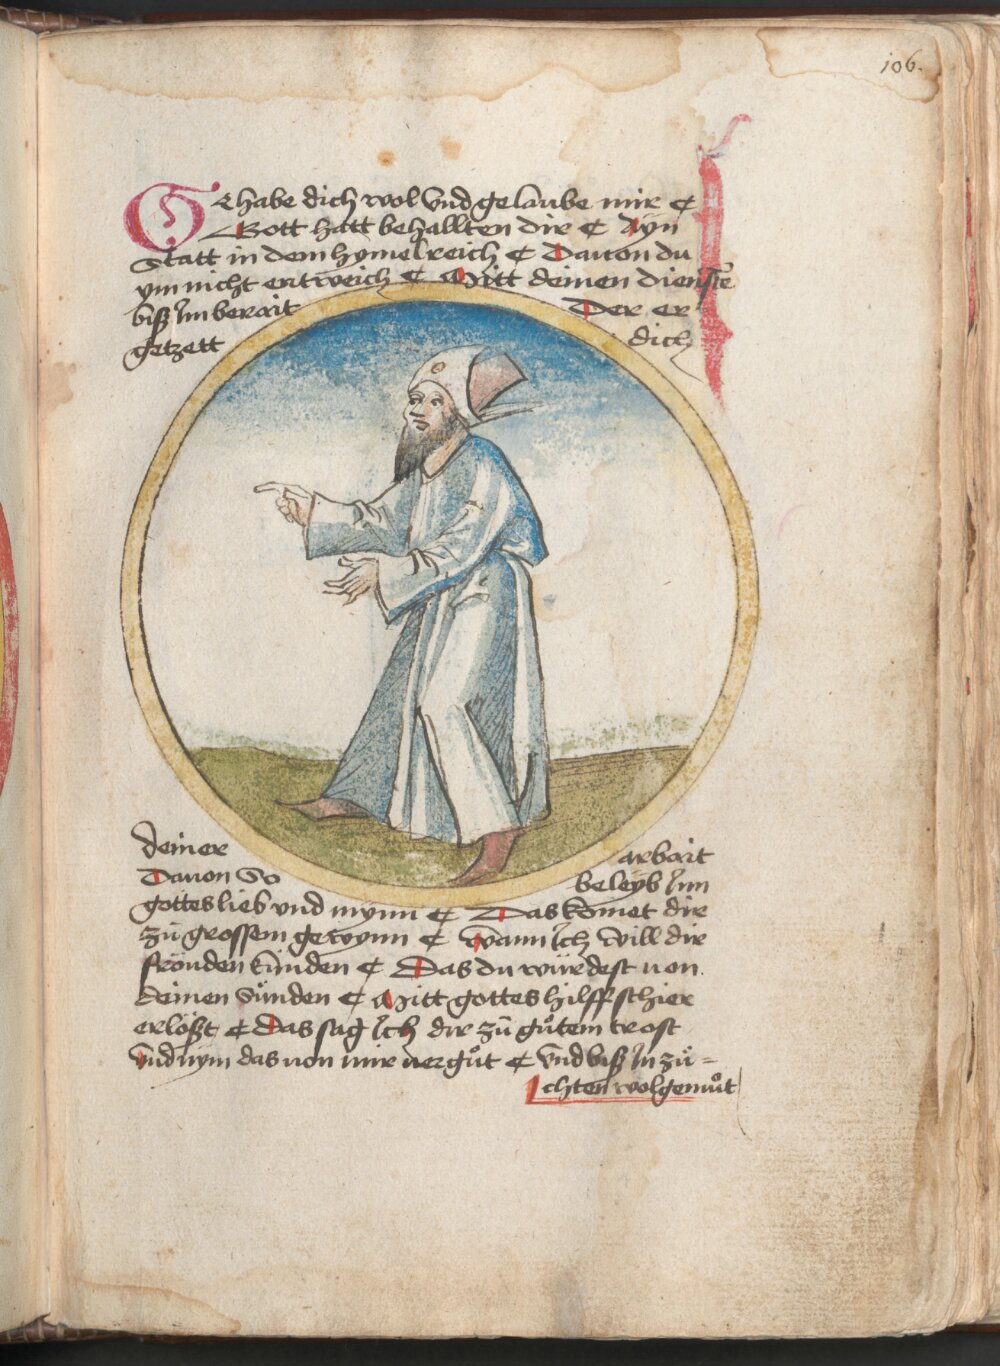 106.
Gehabe dich wol vnd gelaube mir ¶
Gott hatt behallten dir ¶ Ayn
Statt in dem hymelreich ¶ Dauon du
ym nicht entweich ¶ Mitt deinen dienste
biß Im berait Der er
getzett dich
deiner arbait
Dauon So beleyb Inn
gottes lieb vnd mynn ¶ Das komet dir
zů grossem gewynn ¶ Wann Ich Will dir
fröuden künden ¶ Das du würdest uon
deinen Sünden ¶ Mitt gottes hilff schier
erlößt ¶ Das sag Ich dir zů gůtem trost
Vnd nym das uon mir uergůt ¶ Vnd biß In zü=
chten wolgemůt